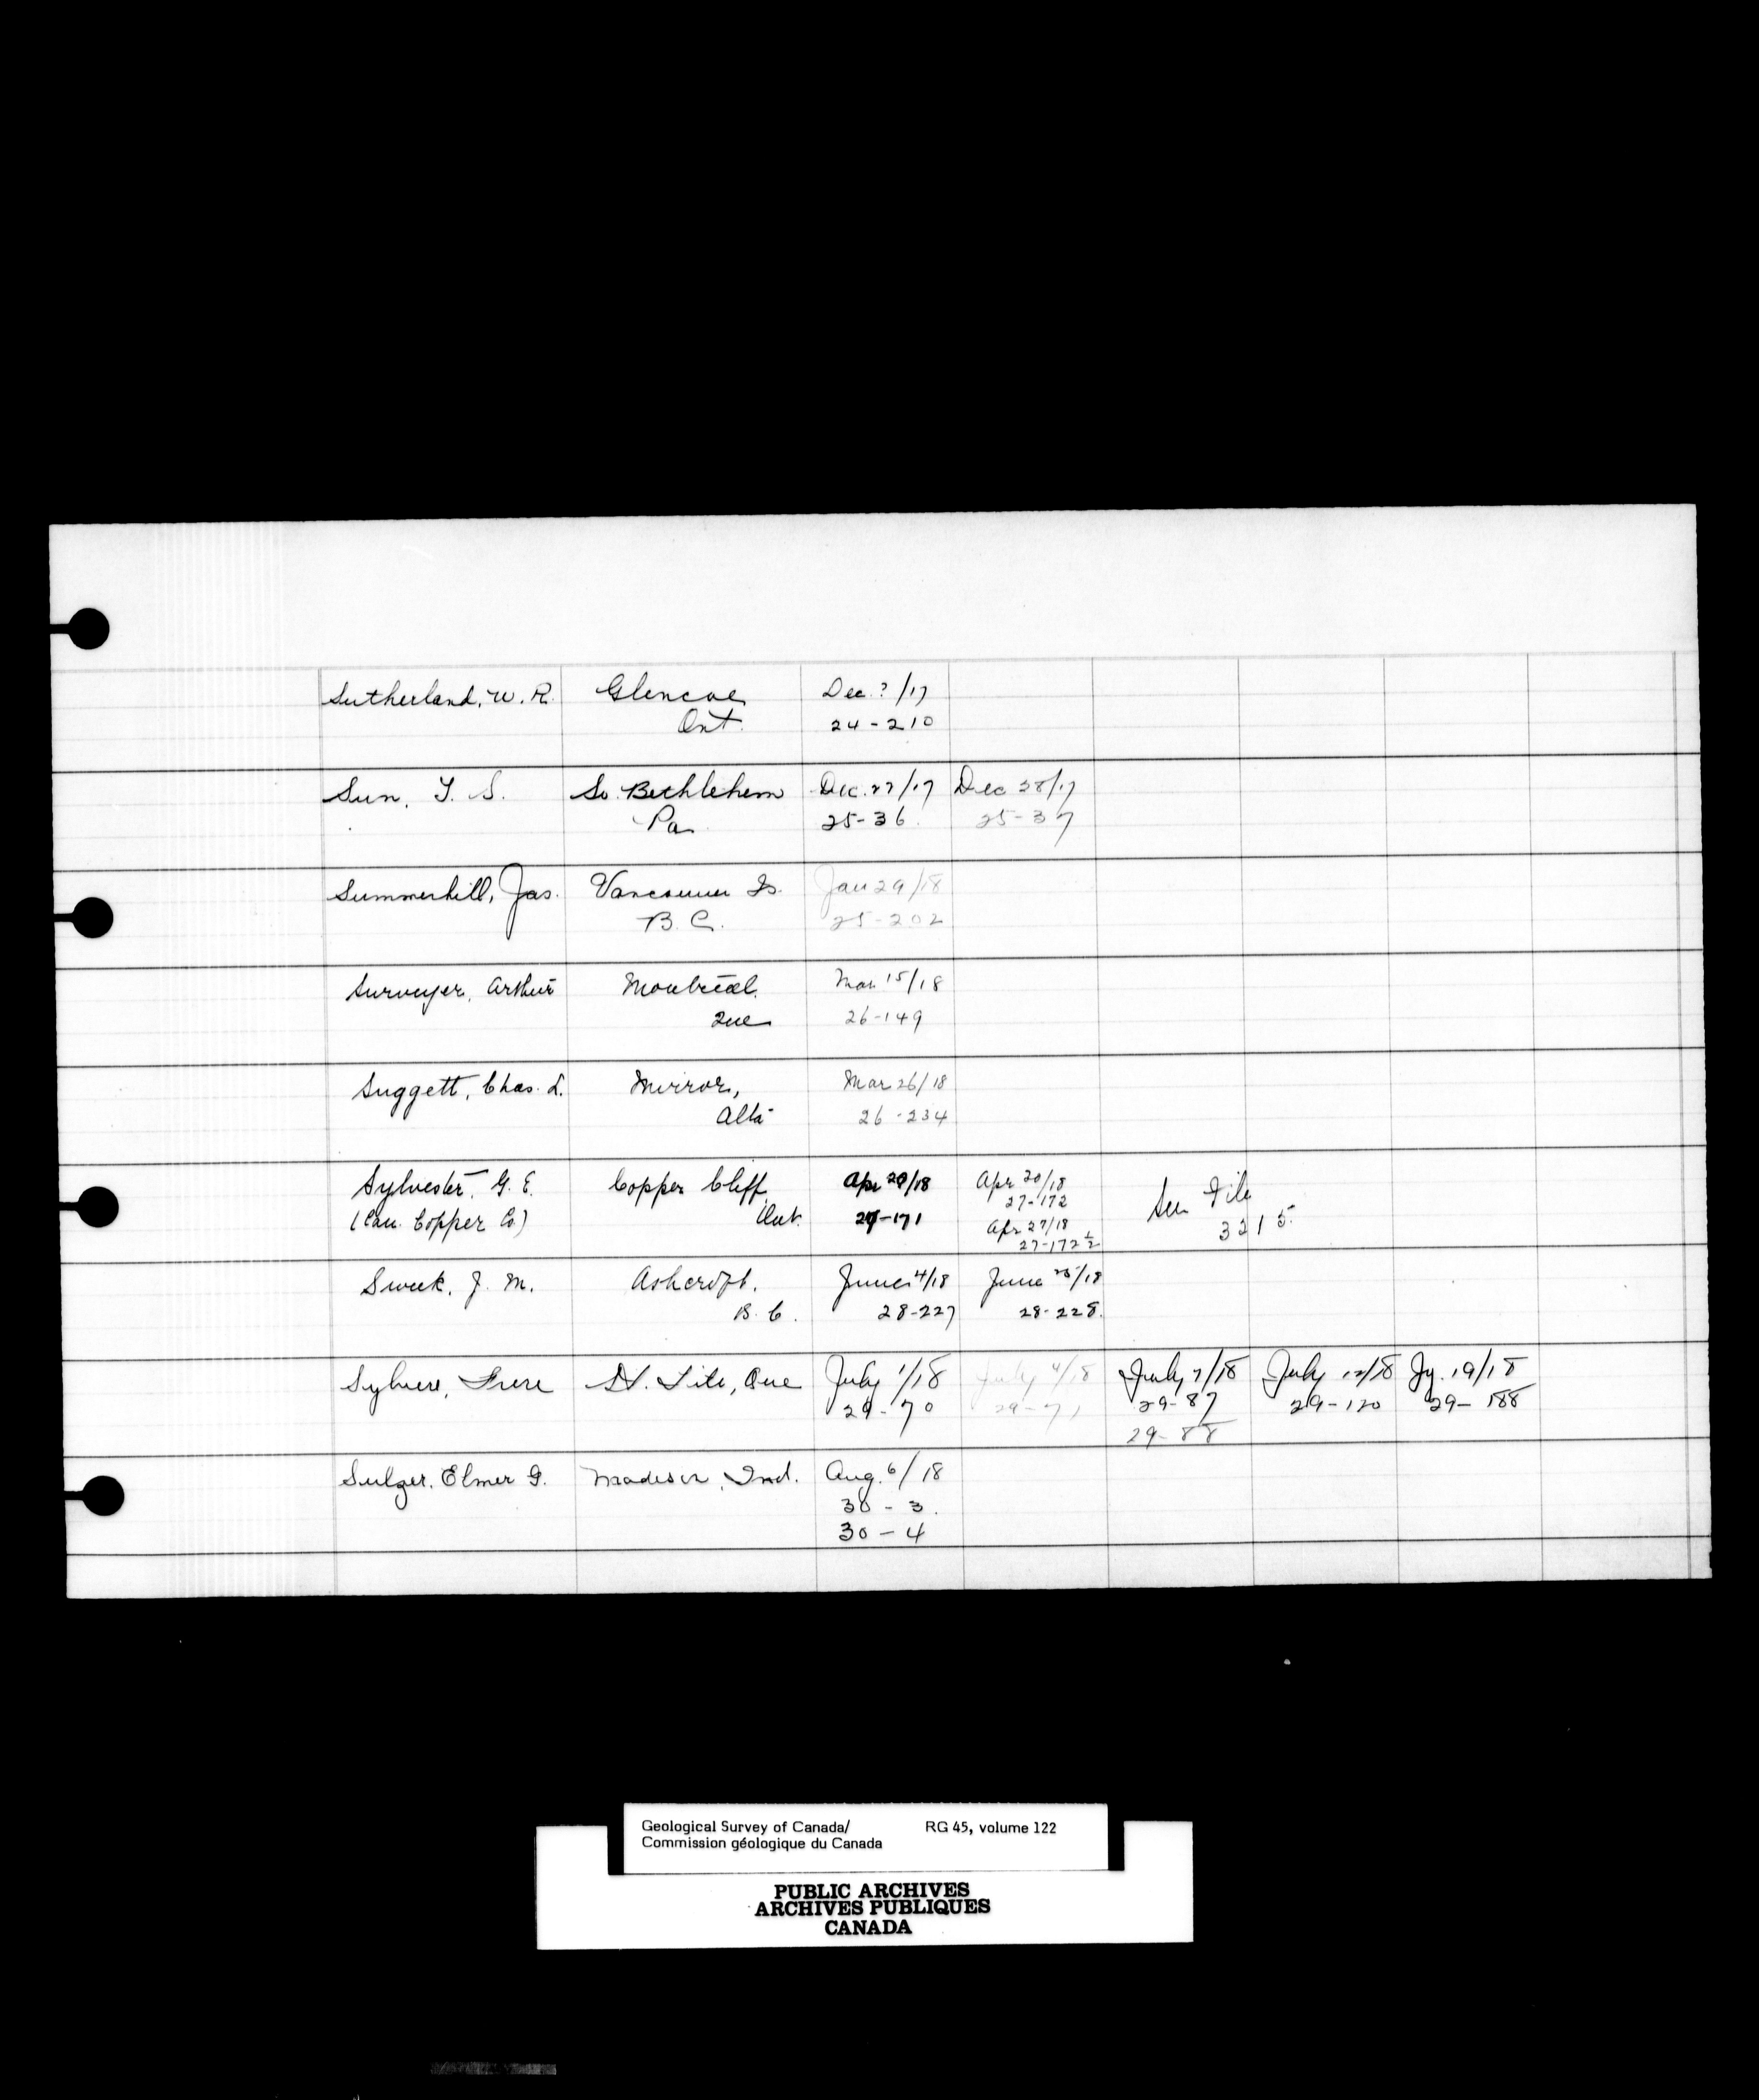 Sutherland, W. R. Glencoe Dec. ? /17
Ont. 24-210
Sun, Y. S. So. Bethlehem Dec. 27/17 Dec 28/17
Pa. 25-36 25-37
Summerhill, Jas. Vancouver Is. Jan 29/18
B. C. 25-202
Surveyer, Arthur Montreal Mar. 15/18
Que 26-149
Suggett, Chas. L. Mirror, Mar 26/18
Alta 26-234
Sylvester, G. E. Copper Cliff, Apr 29/18 Apr 30/18 See File
27-172
(Can. Copper Co.) Ont. 27-171 Apr 27/18 3215.
27-172½
Sweek, J. M. Ashcroft, June 14/18 June /18
B. C. 28-227 28-228.
Sylvere, Frere St. Tite, Que July 1/18 July 4/18 July 7/18 July 12/18 Jy. 19/18
29-70 29-71 29-87 29-120 29-188
29-88
Sulzer, Elmer G. Madison, Ind. Aug. 6/18
30-3.
30-4
Geological Survey of Canada/ RG 45, volume 122
Commission géologique du Canada
PUBLIC ARCHIVES
ARCHIVES PUBLIQUES
CANADA